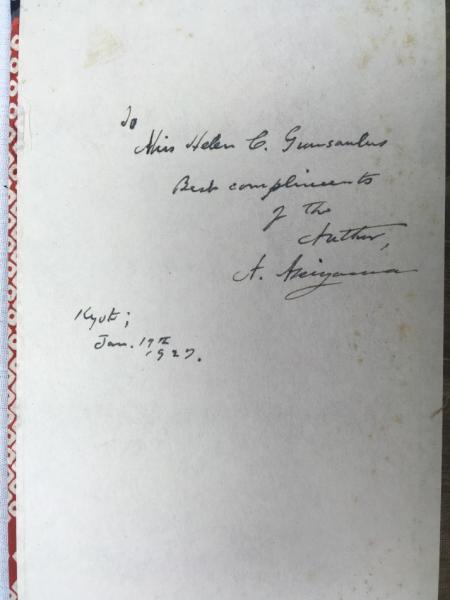 To
Miss Helen C. Gunsaulus
Best compliments
of the
Author,
A. Akiyama
Kyoto;
Jan. 17th
1927.